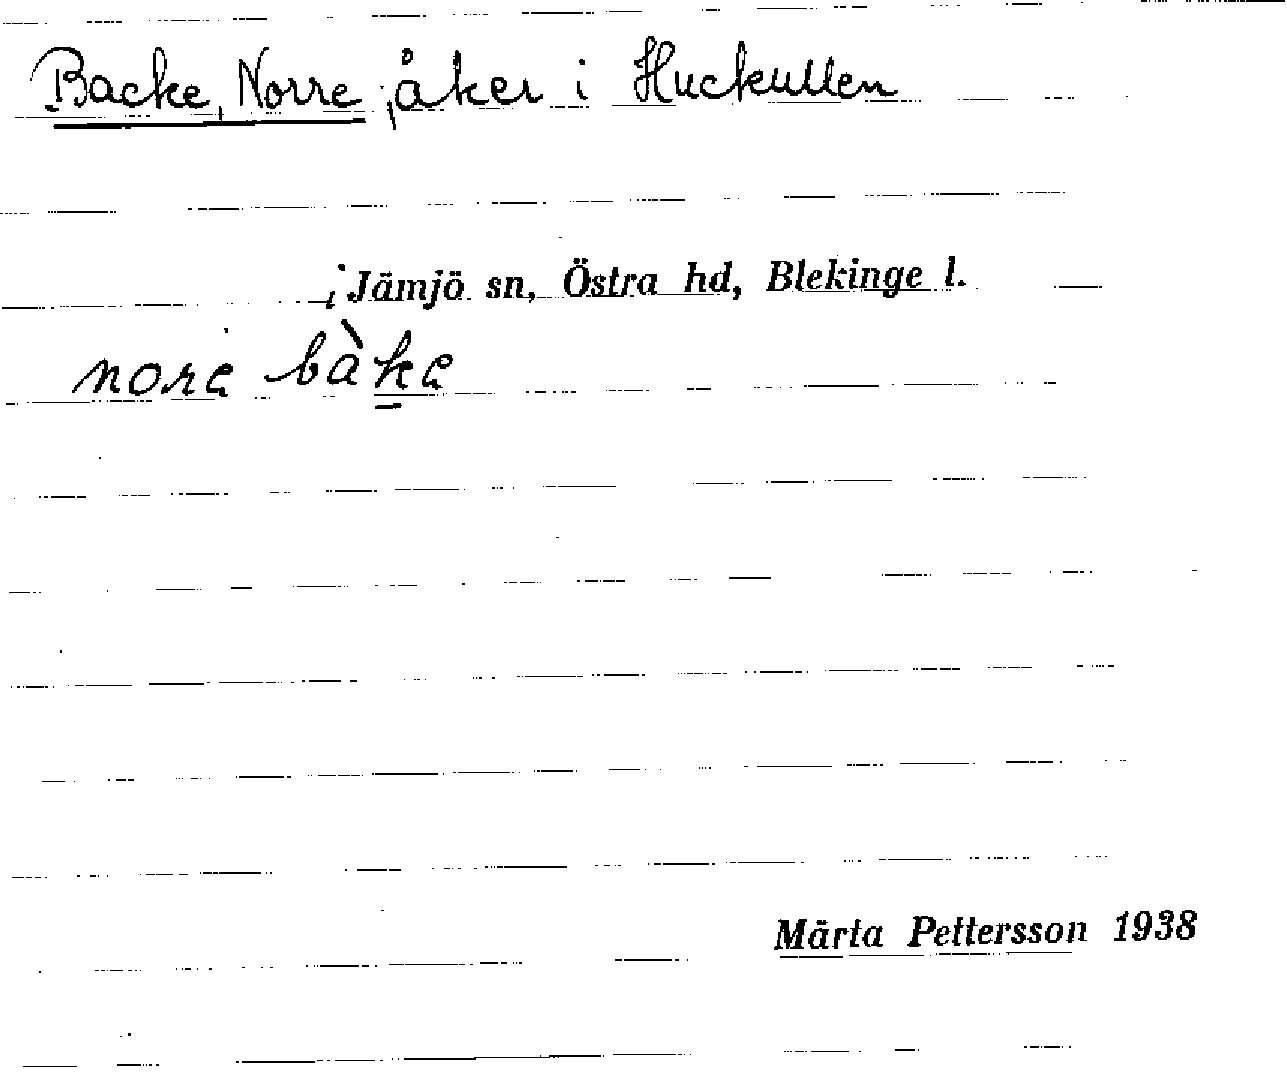 Backe, Norre; åker i Huckullen
i Jämjö sn, Östra hd, Blekinge l.
norə bàkə
Märta Pettersson 1938